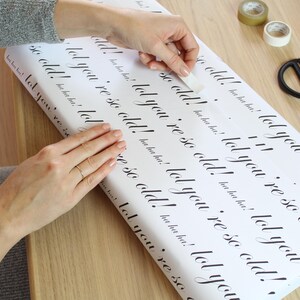 lol you're so old! ha ha ha! lol you're so old!
ha ha ha! lol you're so old! ha ha ha! lol you're so old!
lol you're so old! ha ha ha! lol you're so old! ha ha ha!
lol you're so old! ha ha ha! lol you're so old!